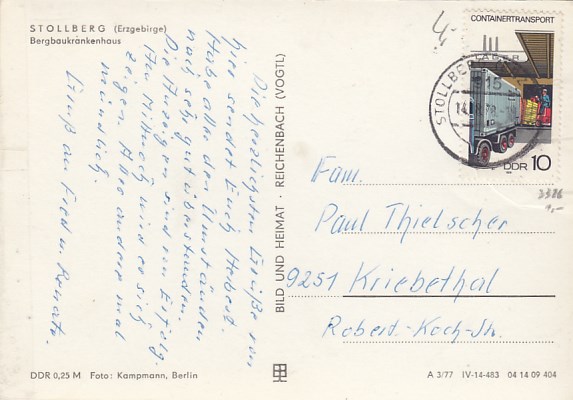 STOLLBERG (Erzgebirge)
Bergbaukrankenhaus
Die herzlichsten Grüße von
hier sendet Euch Hebert.
Habe alles den Umständen
nach sehr gut überstanden.
Die sind ein Erfolg.
Am Mittwoch wird es sich
zeigen. Alles andere mal
mündlich.
Gruß an Fred u. Renate.
BILD UND HEIMAT · REICHENBACH (VOGTL)
CONTAINERTRANSPORT
STOLLBERG
DDR 10
Fam.
Paul Thielscher
9251 Kriebethal
Robert-Koch-Str.
DDR 0,25 M Foto: Kampmann, Berlin
A 3/77 IV-14-483 04 14 09 404